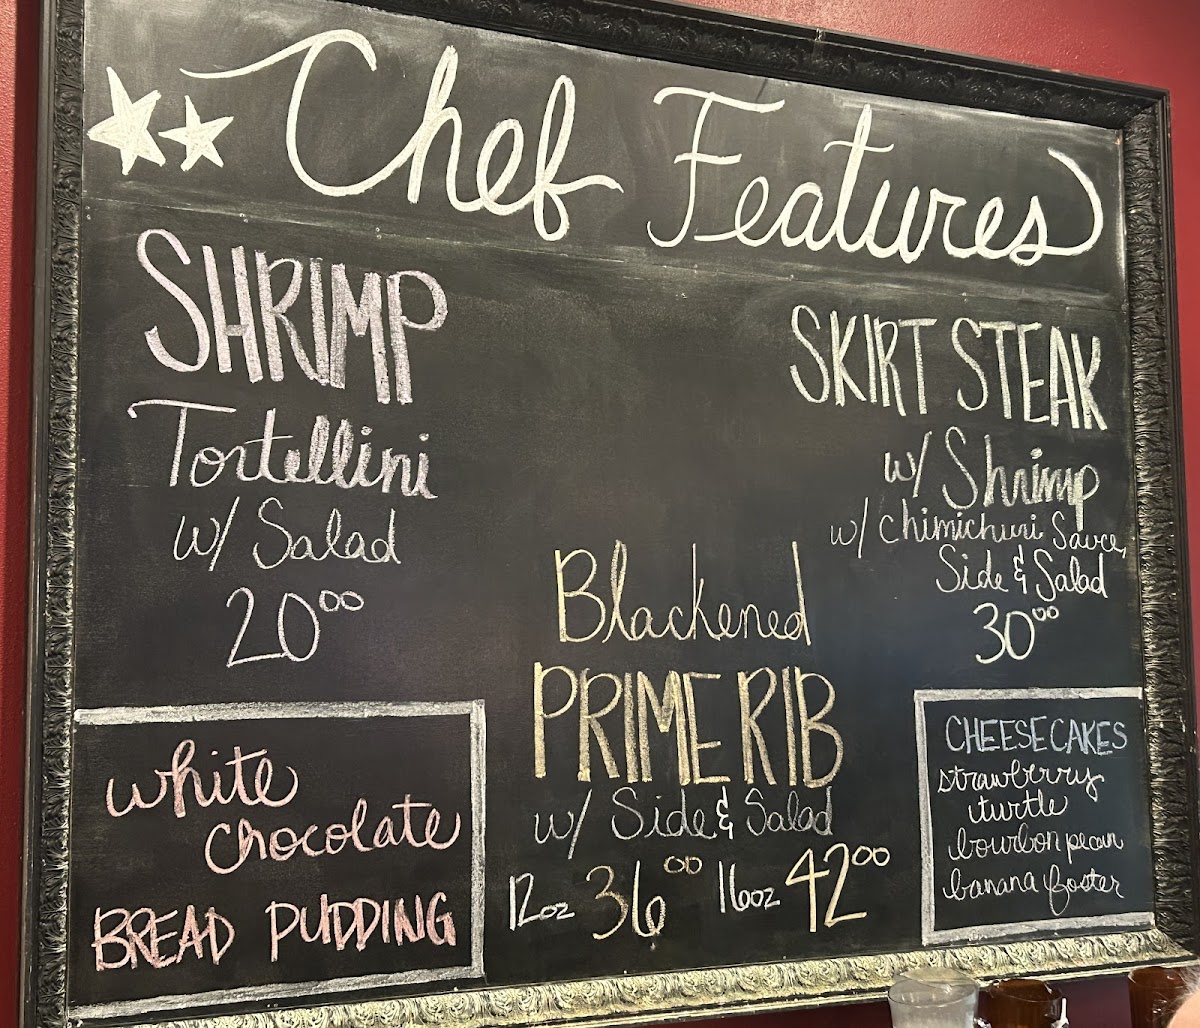 Chef Features
SHRIMP
Tortellini
w/ Salad
20⁰⁰
SKIRT STEAK
w/ Shrimp
w/ chimichuri Sauce,
Side & Salad
30⁰⁰
Blackened
PRIME RIB
w/ Side & Salad
12oz 36⁰⁰ 16oz 42⁰⁰
white
chocolate
BREAD PUDDING
CHEESECAKES
strawberry
turtle
bourbon pecan
banana foster